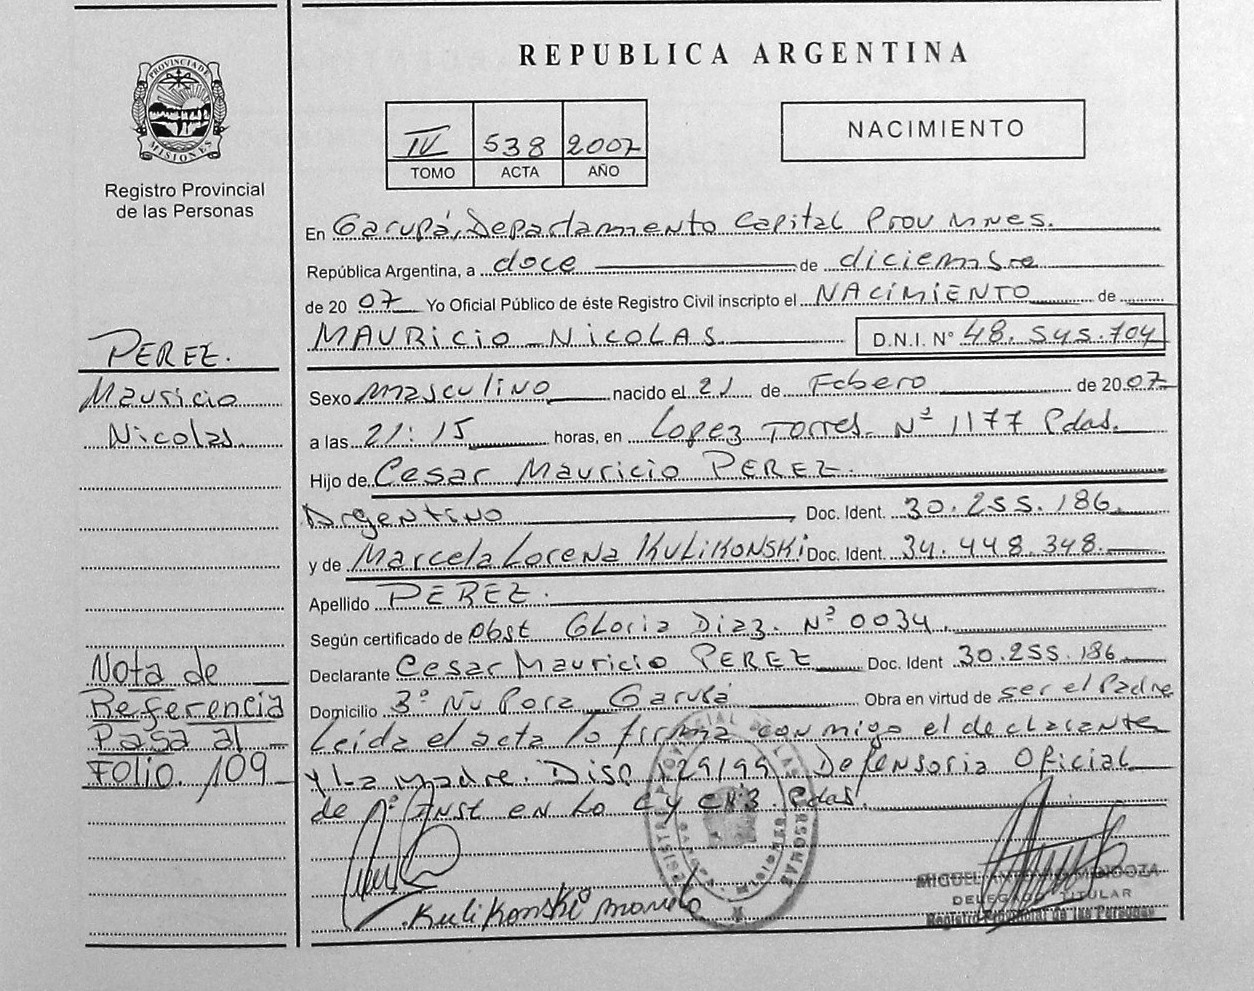 REPUBLICA ARGENTINA
PROVINCIA DE MISIONES
Registro Provincial
de las Personas
IV 538 2007
TOMO ACTA AÑO
NACIMIENTO
En Garupá, Departamento Capital Prov Mnes.
República Argentina, a doce de diciembre
de 20 07 Yo Oficial Público de éste Registro Civil inscripto el NACIMIENTO de
MAURICIO NICOLAS D.N.I. Nº 48.545.704
Sexo masculino nacido el 21 de Febero de 20 07
a las 21:15 horas, en Lopez Torres Nº 1177 Pdas.
Hijo de Cesar Mauricio PEREZ.
Argentino Doc. Ident. 30.255.186
y de Marcela Lorena KULIKONSKI Doc. Ident. 34.448.348
Apellido PEREZ.
Según certificado de Obst Gloria Diaz. Nº 0034.
Declarante Cesar Mauricio PEREZ Doc. Ident 30.255.186
Domicilio 3º Ñu Pora Garupá Obra en virtud de ser el Padre
Leida el acta lo firma conmigo el declarante
y La madre. Disp 129/99 Defensoria Oficial
de 1º Inst en Lo C y Pdas.
PEREZ.
Mauricio
Nicolas
Nota de
Referencia
Pasa al
Folio 109
Kulikonski
MIGUEL ANTONIO MENDOZA
DELEGADO TITULAR
Registro Provincial de las Personas